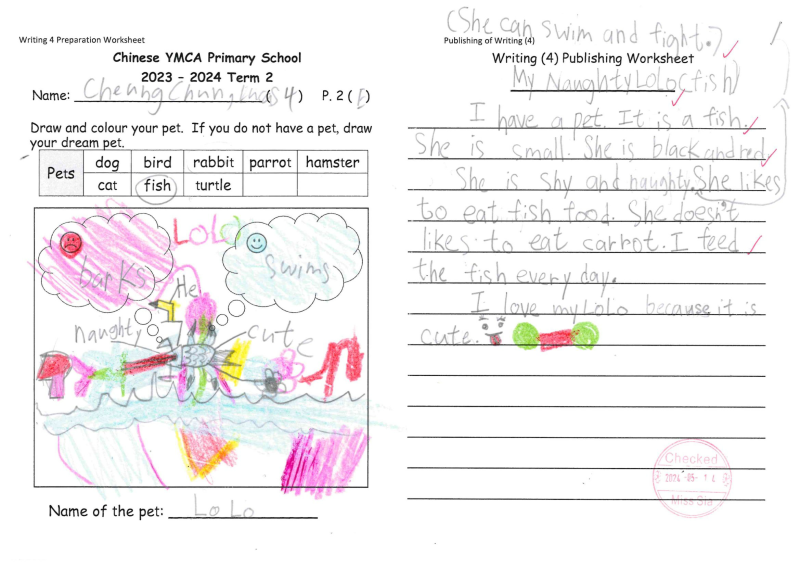 Writing 4 Preparation Worksheet
Chinese YMCA Primary School
2023 – 2024 Term 2
Name: Cheung Chung (4) P. 2 (E)
Draw and colour your pet. If you do not have a pet, draw
your dream pet.
Pets dog bird rabbit parrot hamster
cat fish turtle
LOLO
barks
swims
He
naughty
cute
Name of the pet: LoLo
(She can swim and fight.)
Publishing of Writing (4)
Writing (4) Publishing Worksheet
My Naughty LoLo (fish)
I have a pet. It is a fish.
She is small. She is black and red.
She is shy and naughty. She likes
to eat fish food. She doesn't
likes to eat carrot. I feed
the fish every day.
I love my LoLo because it is
cute.
Checked
2024 -05- 14
Miss Sia